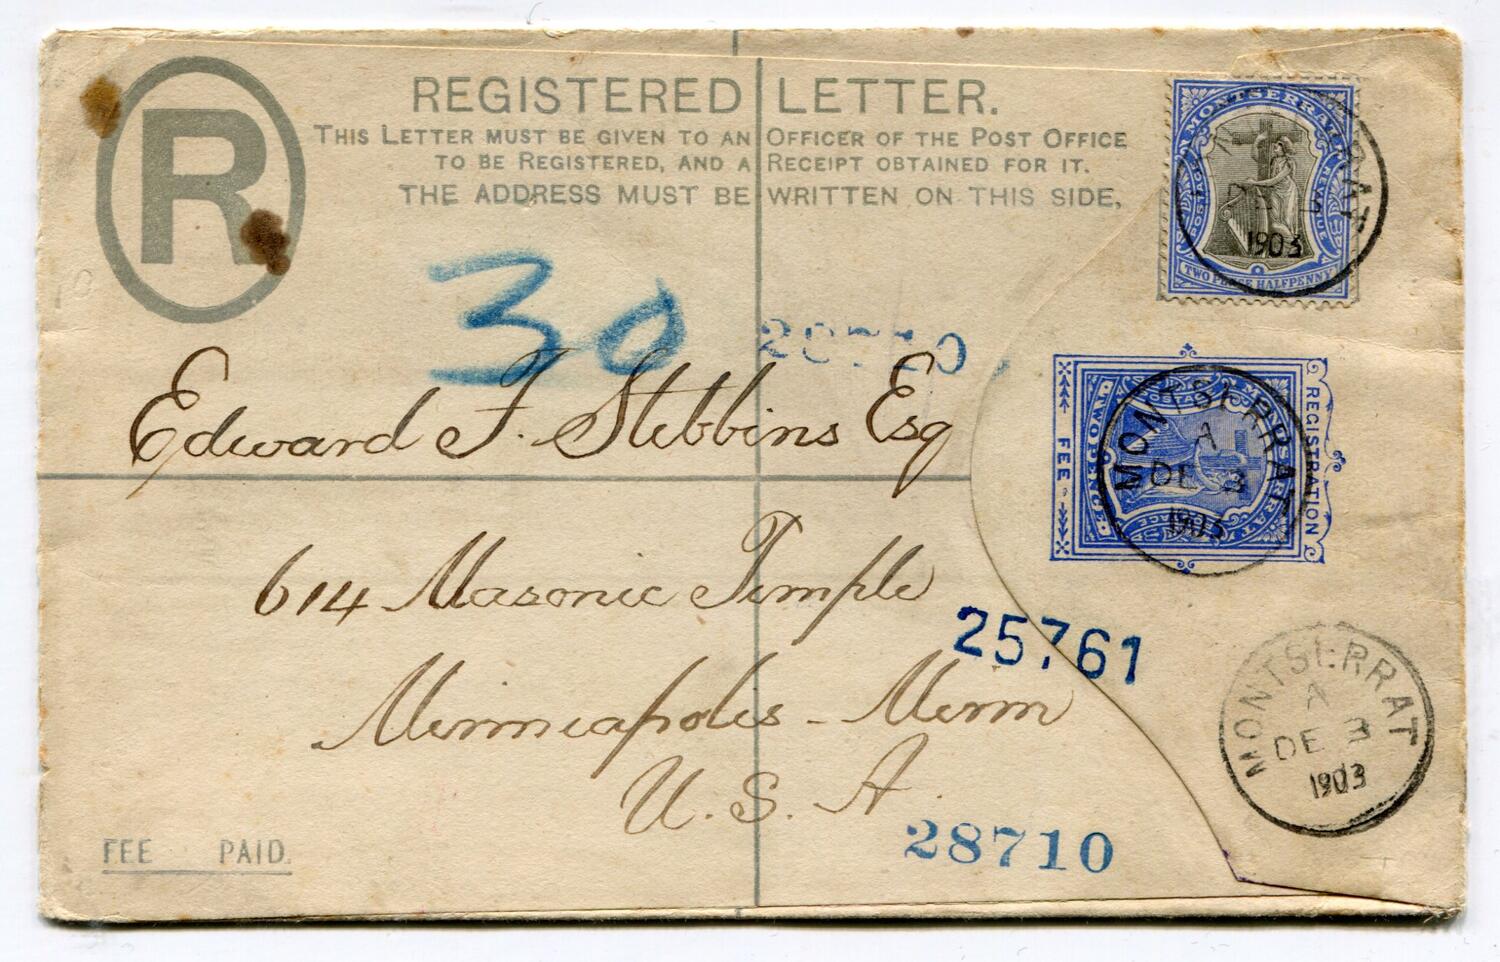 R
REGISTERED LETTER.
THIS LETTER MUST BE GIVEN TO AN OFFICER OF THE POST OFFICE
TO BE REGISTERED, AND A RECEIPT OBTAINED FOR IT.
THE ADDRESS MUST BE WRITTEN ON THIS SIDE,
MONTSERRAT
POSTAGE & REVENUE
TWO PENCE HALFPENNY
MONTSERRAT
1903
30
28710
Edward F. Stebbins Esq
REGISTRATION
FEE
MONTSERRAT
MONTSERRAT
A
DE 3
1903
614 Masonic Temple
25761
Minneapolis - Minn
U. S. A.
MONTSERRAT
A
DE 3
1903
28710
FEE PAID.